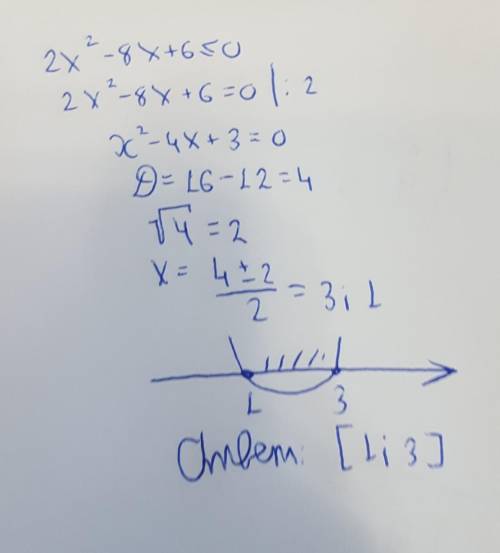 2x² - 8x + 6 ≤ 0
2x² - 8x + 6 = 0 | : 2
x² - 4x + 3 = 0
D = 16 - 12 = 4
√4 = 2
x = (4 ± 2)/2 = 3; 1
1 3
Ответ: [1; 3]